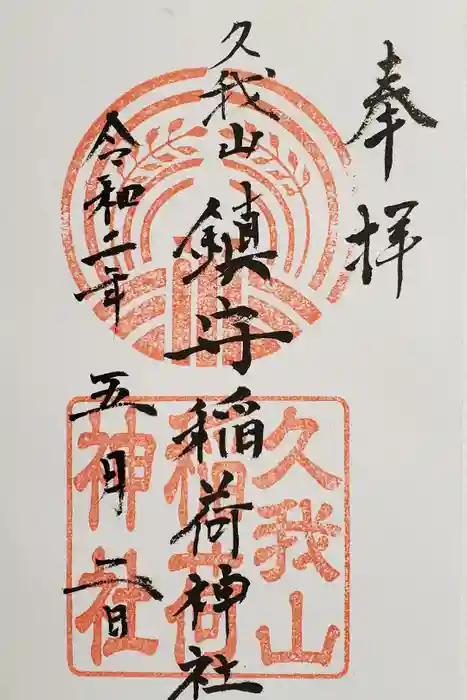 奉拝
久我山
鎮守稲荷神社
令和二年
五月二日
久我山
稲荷
神社